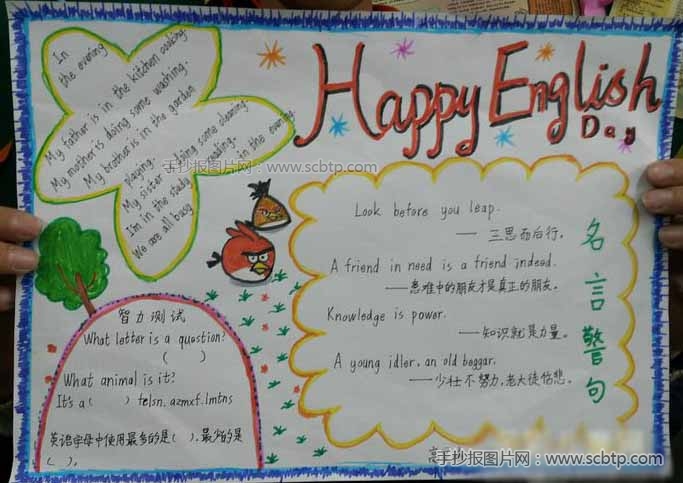 In
the evening
My father is in the kitchen cooking.
My mother is doing some washing.
My brother is in the garden
playing.
My sister is doing some cleaning.
I'm in the study reading.
We are all busy in the evening.
Happy English
Day
手抄报图片网:www.scbtp.com
Look before you leap.
——三思而后行。
A friend in need is a friend indeed.
——患难中的朋友才是真正的朋友。
Knowledge is power.
——知识就是力量。
A young idler, an old beggar.
——少壮不努力,老大徒伤悲。
名言警句
智力测试
What letter is a question?
( )
What animal is it?
It's a ( ) telsn. azmxf. lmtns
英语字母中使用最多的是( ),最少的是
( )。
手抄报图片网:www.scbtp.com